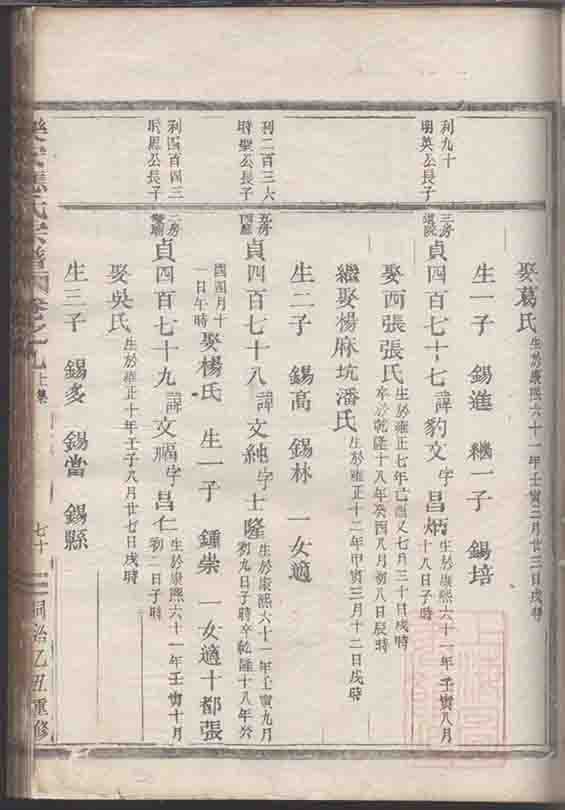 娶葛氏生於康熙六十一年壬寅三月廿三日戌時
生一子 錫進 繼一子 錫培
利九十
明英公長子
三房
貞四百七十七諱豹文字昌炳生於康熙六十一年壬寅八月
十八日子時
娶西張張氏生於雍正七年己酉又七月三十日戌時
卒於乾隆十八年癸酉八月初八日辰時
繼娶楊麻坑潘氏生於雍正十二年甲寅三月十二日戌時
生二子 錫高 錫林 一女適
利二百三六
時 公長子
貞四百七十八諱文純字士隆生於康熙六十一年壬寅九月
初九日子時卒乾隆十八年癸
酉四月十
一日午時娶楊氏 生一子 鍾崇 一女適十都張
利四百四三
時恩公長子
二房
貞四百七十九諱文福字昌仁生於康熙六十一年壬寅十月
初一日子時
娶吳氏生於雍正十年壬子八月廿七日戌時
生三子 錫多 錫當 錫縣
氏宗譜 卷之九上集 七十 同治乙丑重修